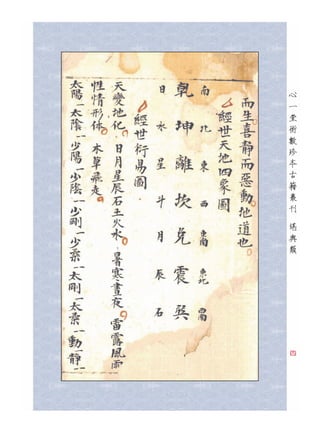 心一堂術數珍本古籍叢刊 堪輿類
而生喜靜而惡動地道也
經世天地四象圖
南 北 東 西 東南 東北 西南
乾 坤 離 坎 兌 震 巽
日 水 星 斗 月 辰 石
經世衍易圖
天變地化 日月星辰石土火水 暑寒晝夜 雷露風雨
性情形体 木草飛走
太陽一太陰一少陽一少陰一少剛一少柔一太剛一太柔一動一靜一
四